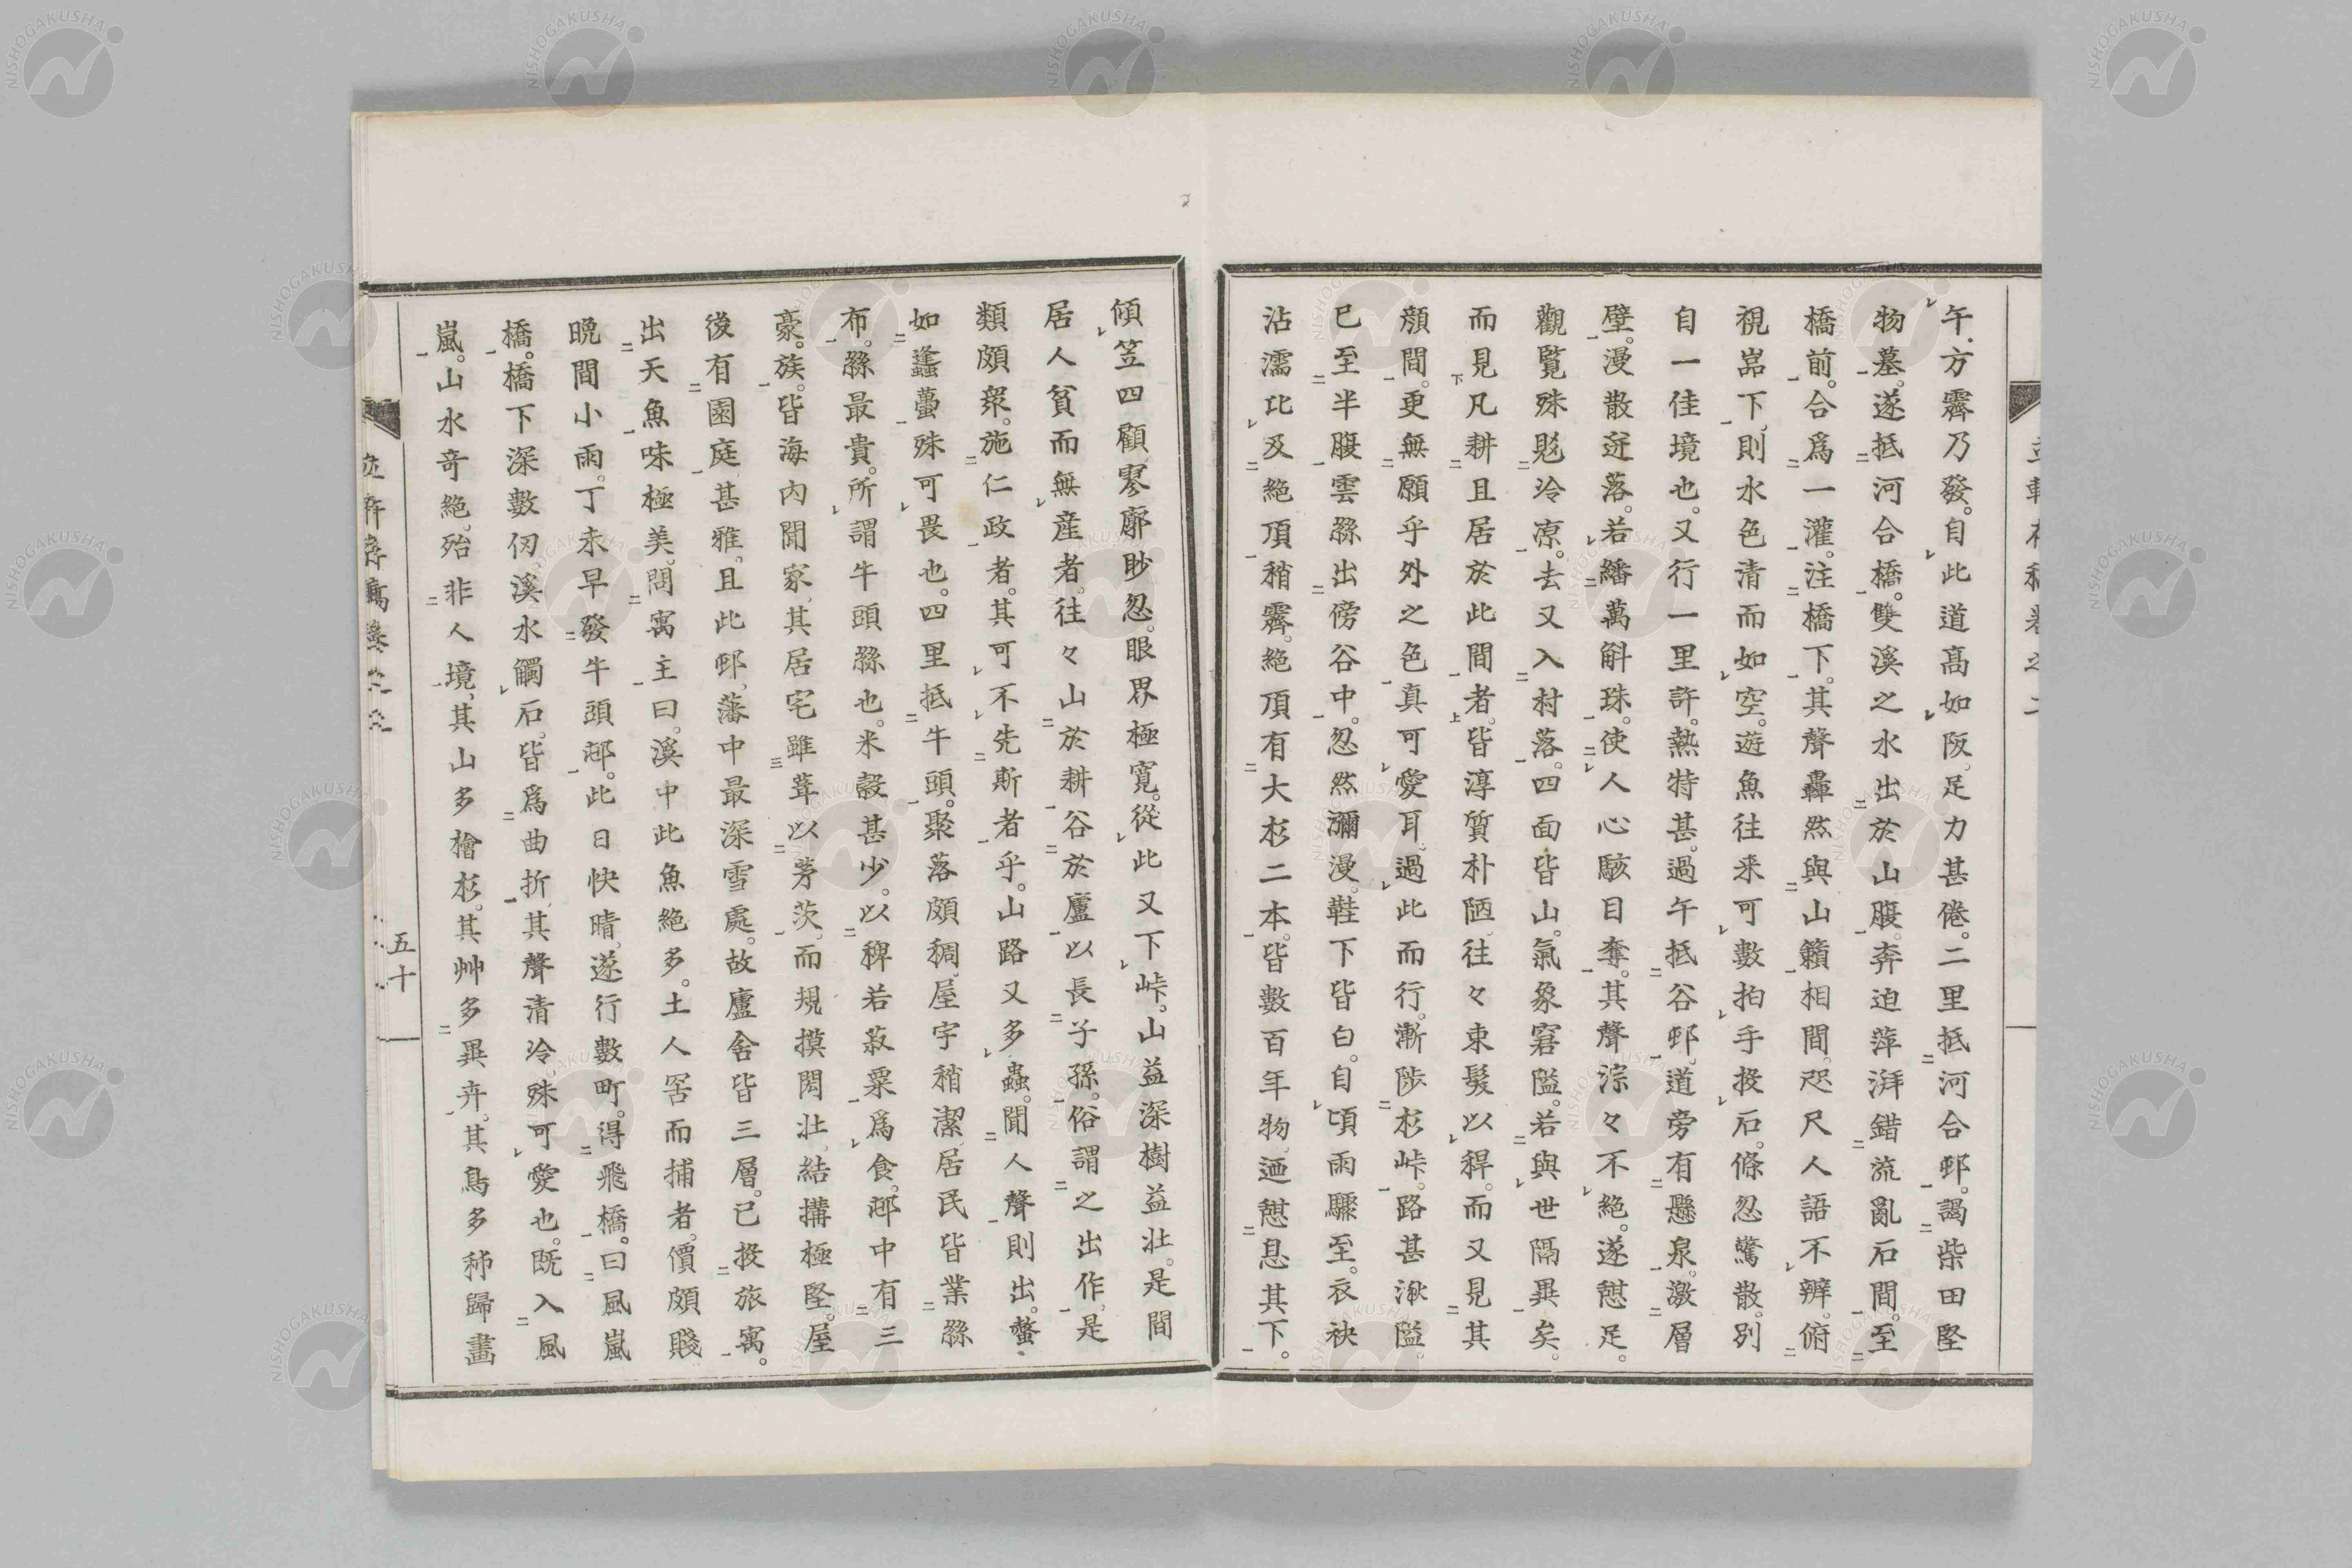 午。方霽乃發。自此道髙如阪。足力甚倦。二里抵河合邨。謁柴田堅
物墓。遂抵河合橋。雙溪之水出於山腹。奔迫萍湃錯流亂石間。至
橋前。合爲一灌。注橋下。其聲轟然與山籟相間。咫尺人語不辨。俯
視岩下。則水色清而如空。遊魚往来可數。拍手投石。倏忽驚散。別
自一佳境也。又行一里許。熱特甚。過午抵谷邨。道旁有懸泉。激層
壁。漫散迸落。若繙萬斛珠。使人心駭目奪。其聲淙々不絶。遂憇足。
觀覧殊覐冷凉。去又入村落。四面皆山。氣象窘隘。若與世隔異矣。
而見凡耕且居於此間者。皆淳質朴陋。往々束髮以稈。而又見其
顔間。更無願乎外之色。真可愛耳。過此而行。漸陟杉峠。路甚湫隘。
已至半腹雲緜出傍谷中。忽然瀰漫。鞋下皆白。自頃雨驟至。衣袂
沾濡比及絶頂稍霽。絶頂有大杉二本。皆數百年物。迺憇息其下。
傾笠四顧寥廓眇忽。眼界極寛。從此又下峠。山益深樹益壮。是間
居人貧而無産者。往々山於耕谷於廬以長子孫。俗謂之出作。是
類頗衆。施仁政者。其可不先斯者乎。山路又多蟲。聞人聲則出。螫
如蜂蠆殊可畏也。四里抵牛頭。聚落頗稠。屋宇稍潔。居民皆業緜
布。緜最貴。所謂牛頭緜也。米穀甚少。以稗若菽粟爲食。邨中有三
豪族。皆海内聞家。其居宅雖葺以茅茨。而規摸閎壮。結搆極堅。屋
後有園庭。甚雅。且此邨。藩中最深雪處。故廬舍皆三層。已投旅寓。
出天魚味極美。問寓主曰。溪中此魚絶多。土人罟而捕者。價頗賤
晩間小雨。丁未早發牛頭邨。此日快晴。遂行數町。得飛橋。曰風嵐
橋。橋下深數仭溪水觸石。皆爲曲折。其聲清冷殊可愛也。既入風
嵐。山水奇絶。殆非人境。其山多檜杉。其艸多異卉。其鳥多秭歸畫
五十
NISHOGAKUSHA